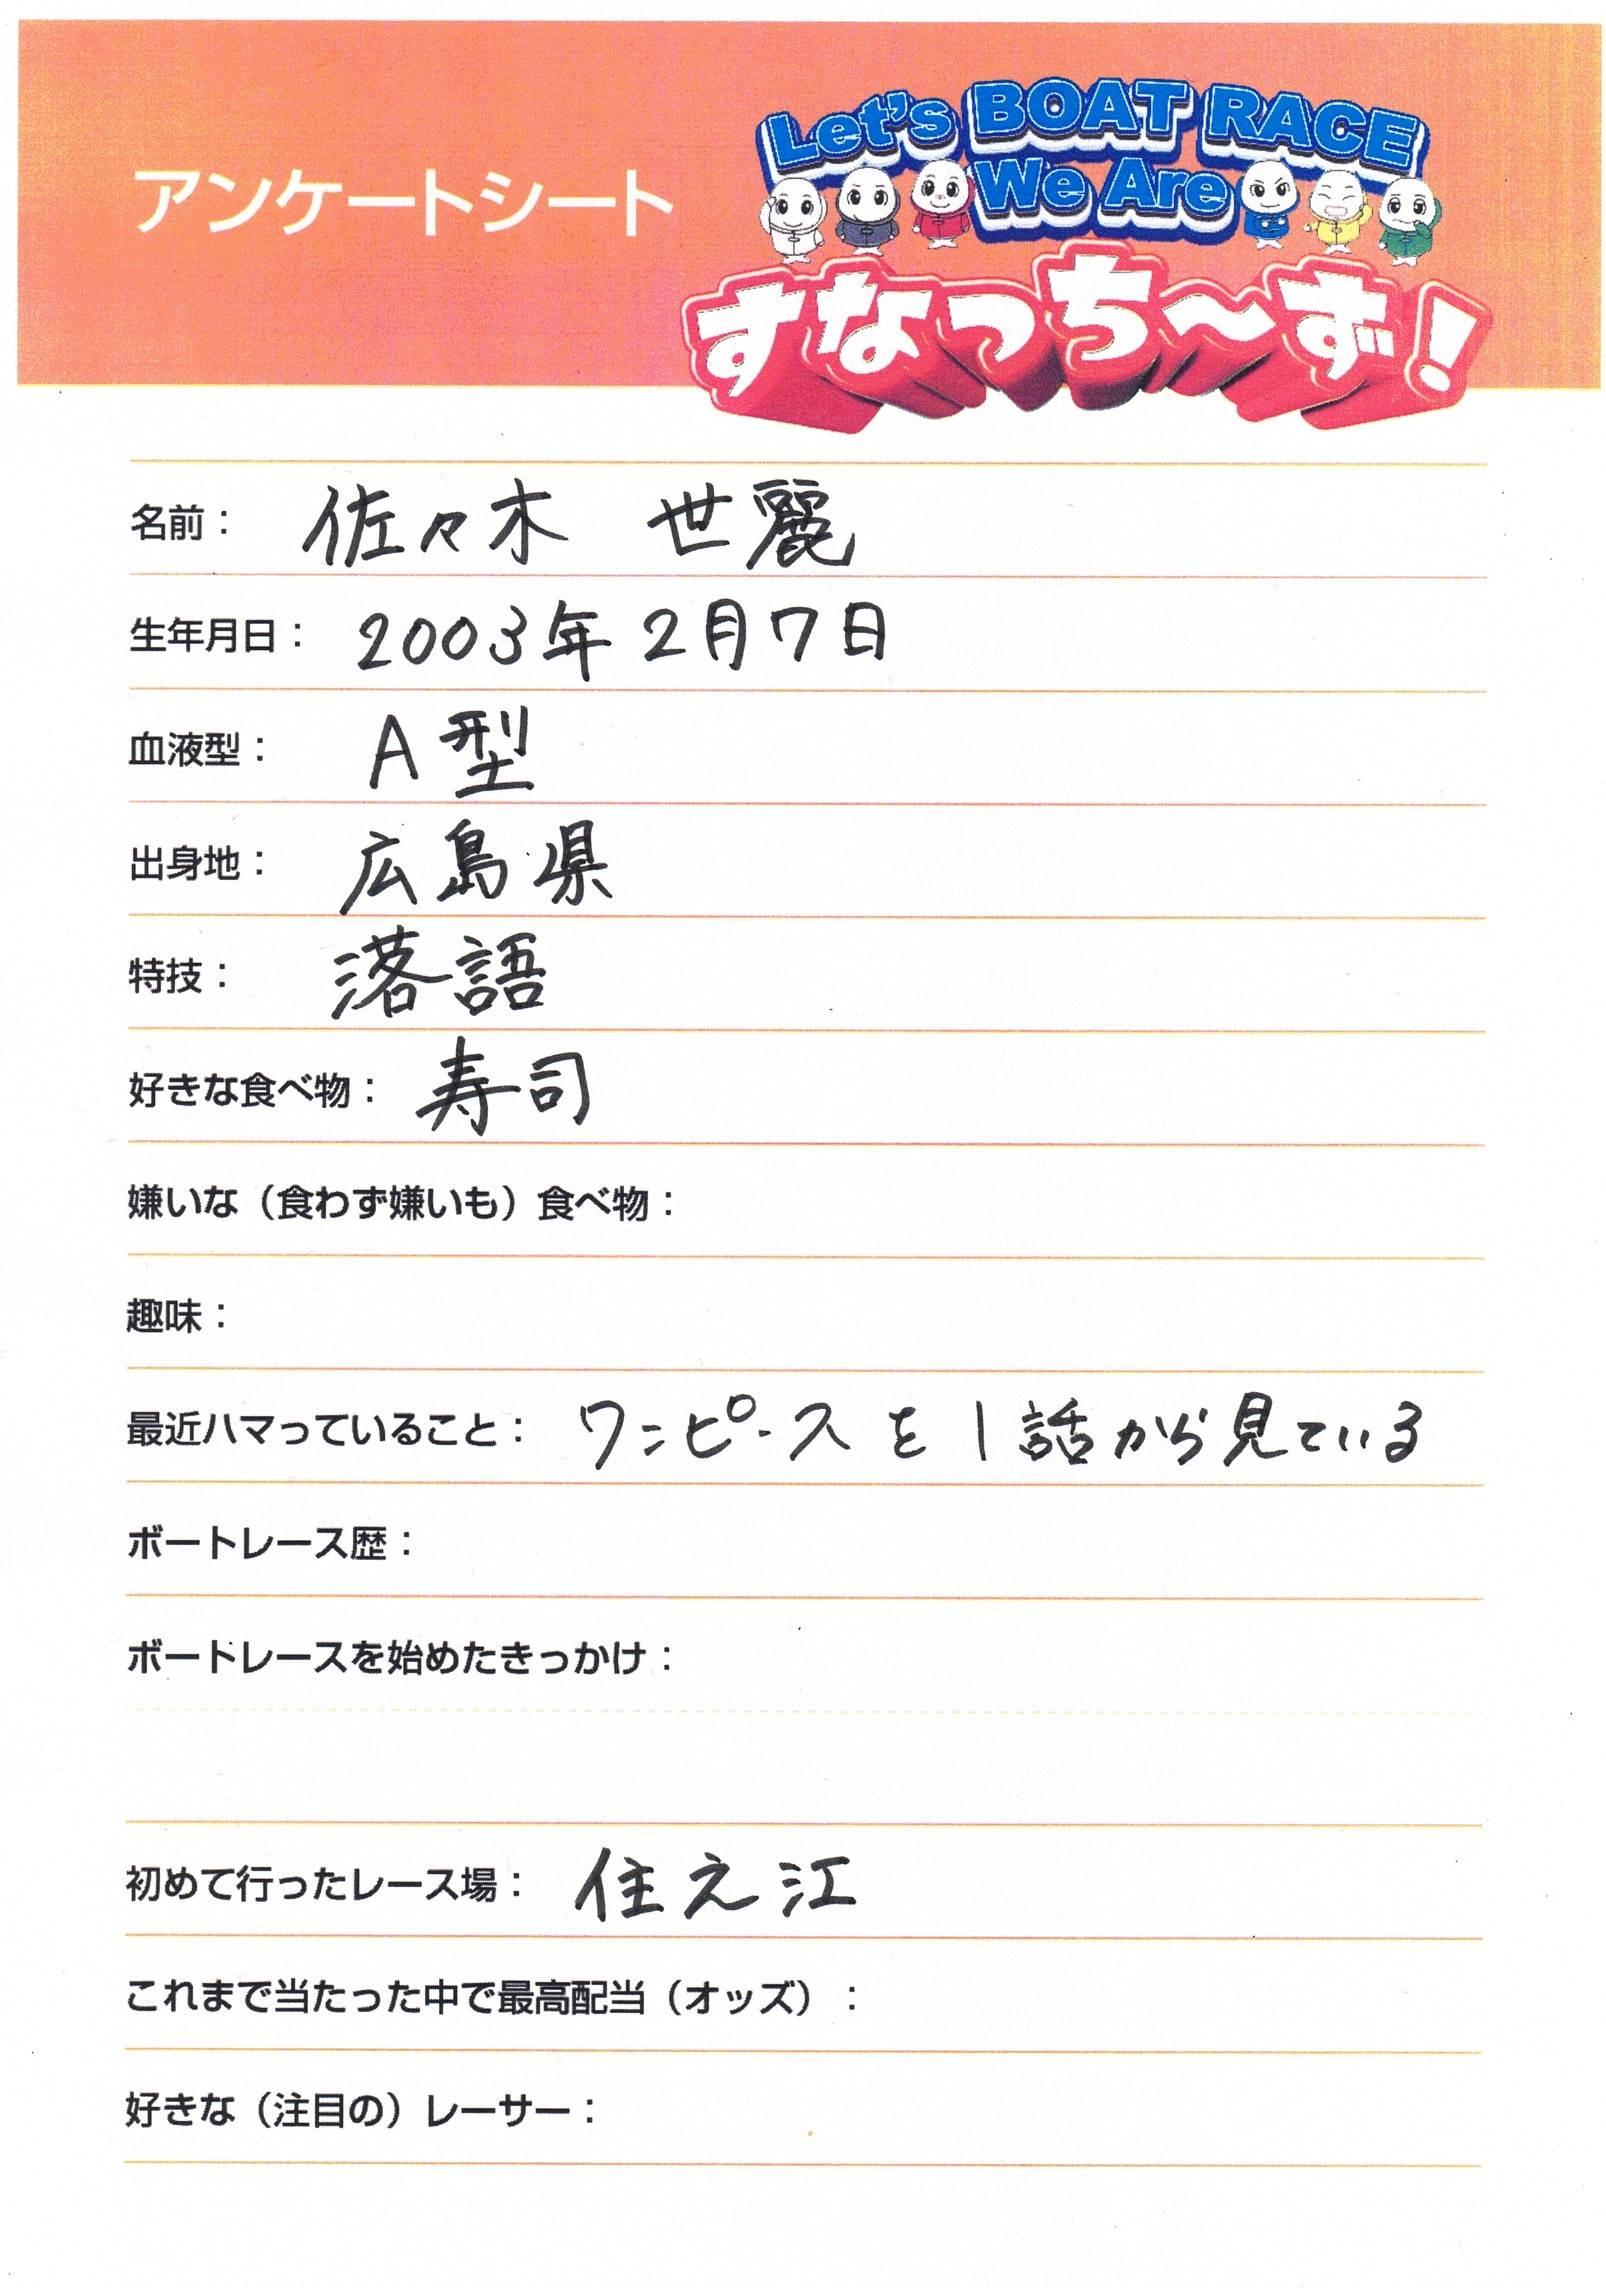 アンケートシート
Let's BOAT RACE
We Are
すなっち～ず!
名前： 佐々木 世麗
生年月日： 2003年2月7日
血液型： A型
出身地： 広島県
特技： 落語
好きな食べ物： 寿司
嫌いな（食わず嫌いも）食べ物：
趣味：
最近ハマっていること： ワンピースを1話から見ている
ボートレース歴：
ボートレースを始めたきっかけ：
初めて行ったレース場： 住之江
これまで当たった中で最高配当（オッズ）：
好きな（注目の）レーサー：